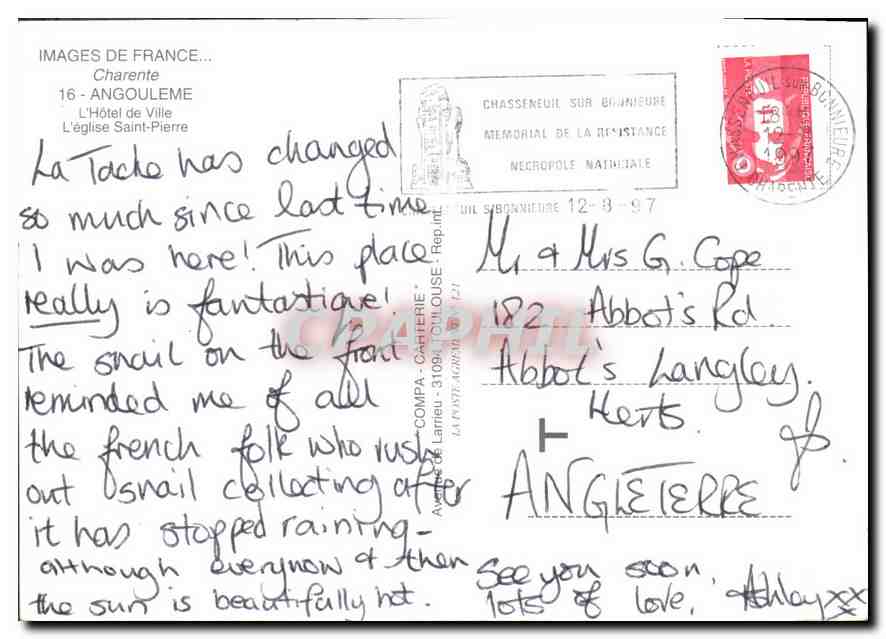 IMAGES DE FRANCE...
Charente
16 - ANGOULEME
L'Hôtel de Ville
L'église Saint-Pierre
La Tache has changed
so much since last time
I was here! This place
really is fantastique!
The snail on the font
reminded me of all
the french folk who rush
out snail collecting after
it has stopped raining -
although everynow & then
the sun is beautifully hot.
"COMPA - CARTERIE"
Avenue de Larrieu - 31094 TOULOUSE - Rep.int.
LA POSTE AGREMENT 121
CHASSENEUIL SUR BONNIEURE
MEMORIAL DE LA RESISTANCE
NECROPOLE NATIONALE
CHASSENEUIL S/BONNIEURE 12-8-97
CHASSENEUIL SUR BONNIEURE
18
12-8
1997
CHARENTE
REPUBLIQUE FRANÇAISE
LA POSTE
Mr & Mrs G. Cope
182 Abbot's Rd.
Abbot's Langley.
Herts.
T
ANGLETERRE
See you soon,
lots of love, Ashley xx
x
CPAPHIL